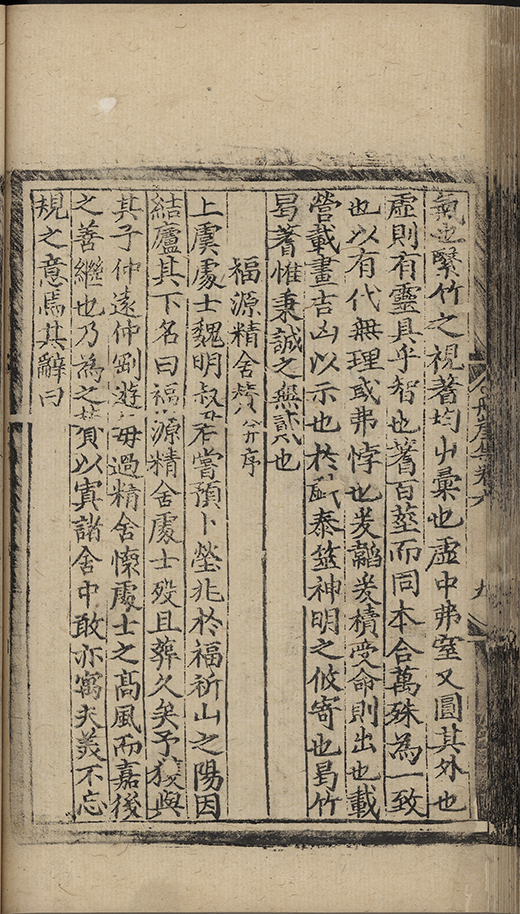 氣也緊竹之視蓍均屮彙也虛中弗窒又圓其外也
虛則有靈具乎智也蓍百莖而同本合萬殊為一致
也以有代無理或弗悖也爰韜爰櫝受命則出也載
營載畫吉凶以示也於 泰筮神明之攸寄也曷竹
曷蓍惟秉誠之無貳也
福源精舍 并序
上虞處士魏明叔 嘗預卜塋兆於福祈山之陽因
結廬其下名曰福源精舍處士歿且葬久矣予 與
其子仲遠仲剛遊 毋過精舍懷處士之高風而嘉後
之善繼也乃為之 以寘諸舍中敢亦寓夫美不忘
規之意焉其辭曰
卷六
九